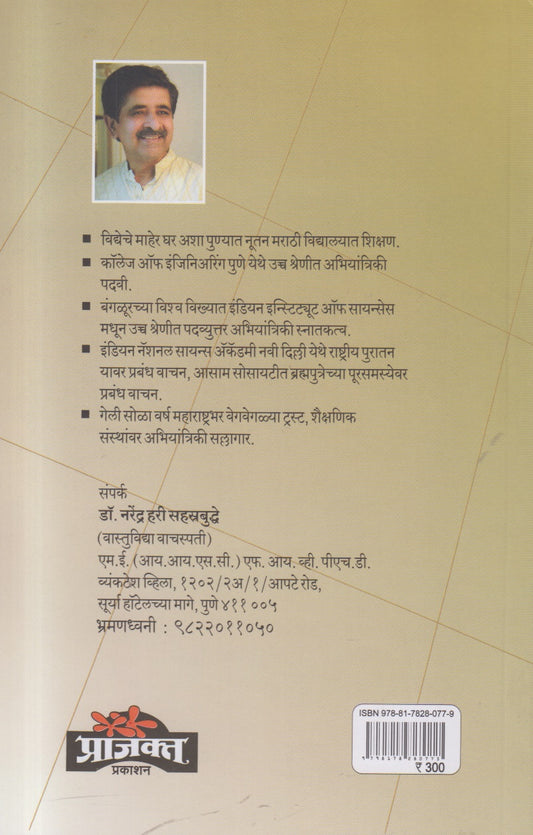 ■ विद्येचे माहेर घर अशा पुण्यात नूतन मराठी विद्यालयात शिक्षण.
■ कॉलेज ऑफ इंजिनिअरिंग पुणे येथे उच्च श्रेणीत अभियांत्रिकी
पदवी.
■ बंगळूरच्या विश्व विख्यात इंडियन इन्स्टिट्यूट ऑफ सायन्सेस
मधून उच्च श्रेणीत पदव्युत्तर अभियांत्रिकी स्नातकत्व.
■ इंडियन नॅशनल सायन्स अ‍ॅकॅडमी नवी दिल्ली येथे राष्ट्रीय पुरातन
यावर प्रबंध वाचन, आसाम सोसायटीत ब्रह्मपुत्रेच्या पूरसमस्येवर
प्रबंध वाचन.
■ गेली सोळा वर्ष महाराष्ट्रभर वेगवेगळ्या ट्रस्ट, शैक्षणिक
संस्थांवर अभियांत्रिकी सल्लागार.
संपर्क
डॉ. नरेंद्र हरी सहस्रबुद्धे
(वास्तुविद्या वाचस्पती)
एम.ई. (आय.आय.एस.सी.) एफ. आय. व्ही. पीएच.डी.
व्यंकटेश व्हिला, १२०२/२अ/१/आपटे रोड,
सूर्या हॉटेलच्या मागे, पुणे ४११ ००५
भ्रमणध्वनी : ९८२२०११०५०
प्राजक्त
प्रकाशन
ISBN 978-81-7828-077-9
9 798178 280773
₹ 300